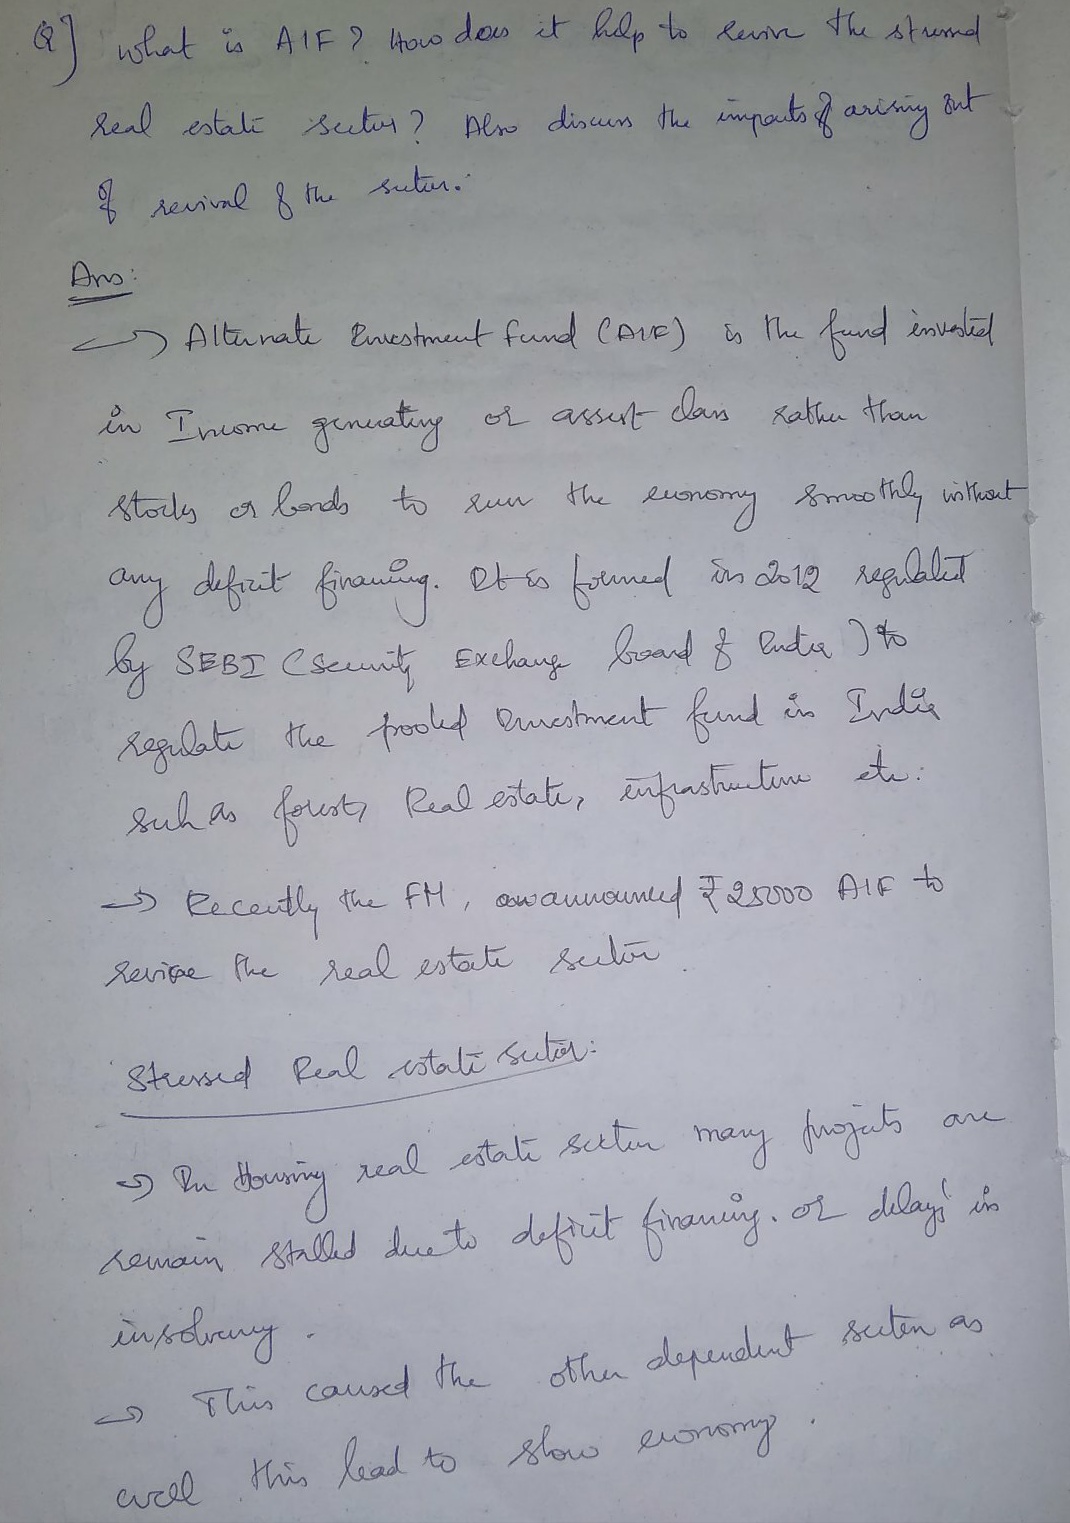 Q] What is AIF? How does it help to revive the stressed
real estate sector? Also discuss the impacts of arising out
of revival of the sector.
Ans:
→ Alternate Investment fund (AIF) is the fund invested
in Income generating or assest class rather than
stocks or bonds to run the economy smoothly without
any deficit financing. It is formed in 2012 regulated
by SEBI (Security Exchange board of India) to
regulate the pooled Investment fund in India
such as forest, Real estate, infrastructure etc.
→ Recently the FM, announced ₹25000 AIF to
revive the real estate sector
Stressed Real estate sector:
→ In Housing real estate sector many projects are
remain stalled due to deficit financing. or delays in
insolvency.
→ This caused the other dependent sector as
well this lead to slow economy.